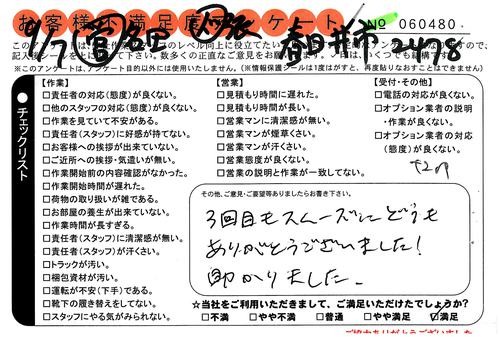 お客様不満足度アンケート
№ 060480
春日井市 2478
【作業】
□責任者の対応(態度)が良くない。
□他のスタッフの対応(態度)が良くない。
□作業を見ていて不安がある。
□責任者(スタッフ)に好感が持てない。
□お客様への挨拶が出来ていない。
□ご近所への挨拶・気遣いが無い。
□作業開始前の内容確認がなかった。
□作業開始時間が遅れた。
□荷物の取り扱いが雑である。
□お部屋の養生が出来ていない。
□作業時間が長すぎる。
□責任者(スタッフ)に清潔感が無い。
□責任者(スタッフ)が汗くさい。
□トラックが汚い。
□梱包資材が汚い。
□運転が不安(下手)である。
□靴下の履き替えをしてない。
□スタッフにやる気がみられない。
【営業】
□見積もり時間に遅れた。
□見積もり時間が長い。
□営業マンに清潔感が無い。
□営業マンが煙草くさい。
□営業マンが汗くさい。
□営業態度が良くない。
□営業の説明と作業が一致してない。
【受付・その他】
□電話の対応が良くない。
□オプション業者の説明
・作業が良くない。
□オプション業者の対応
(態度)が良くない。
●チェックリスト
その他、ご意見・ご要望等ありましたらお書き下さい。
3回目もスムーズにどうも
ありがとうございました!
助かりました。
☆当社をご利用いただきまして、ご満足いただけたでしょうか?
□不満 □やや不満 □普通 □やや満足 ☑満足
ご協力ありがとうございました